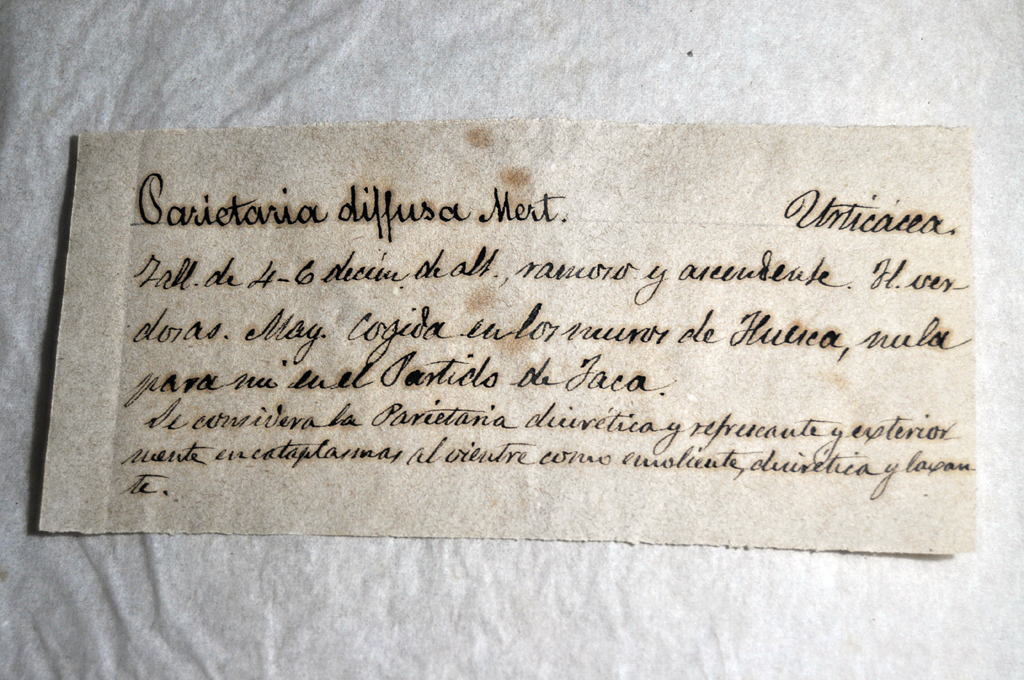 Parietaria diffusa Mert. Urticácea.
Tall. de 4-6 decim. de alt., ramoso y ascendente. Fl. ver-
dosas. May. Cogida en los muros de Huesca, nula
para mi en el Partido de Jaca.
Se considera la Parietaria diurética y refrescante y exterior
mente en cataplasmas al vientre como emoliente, diurética y laxan
te.